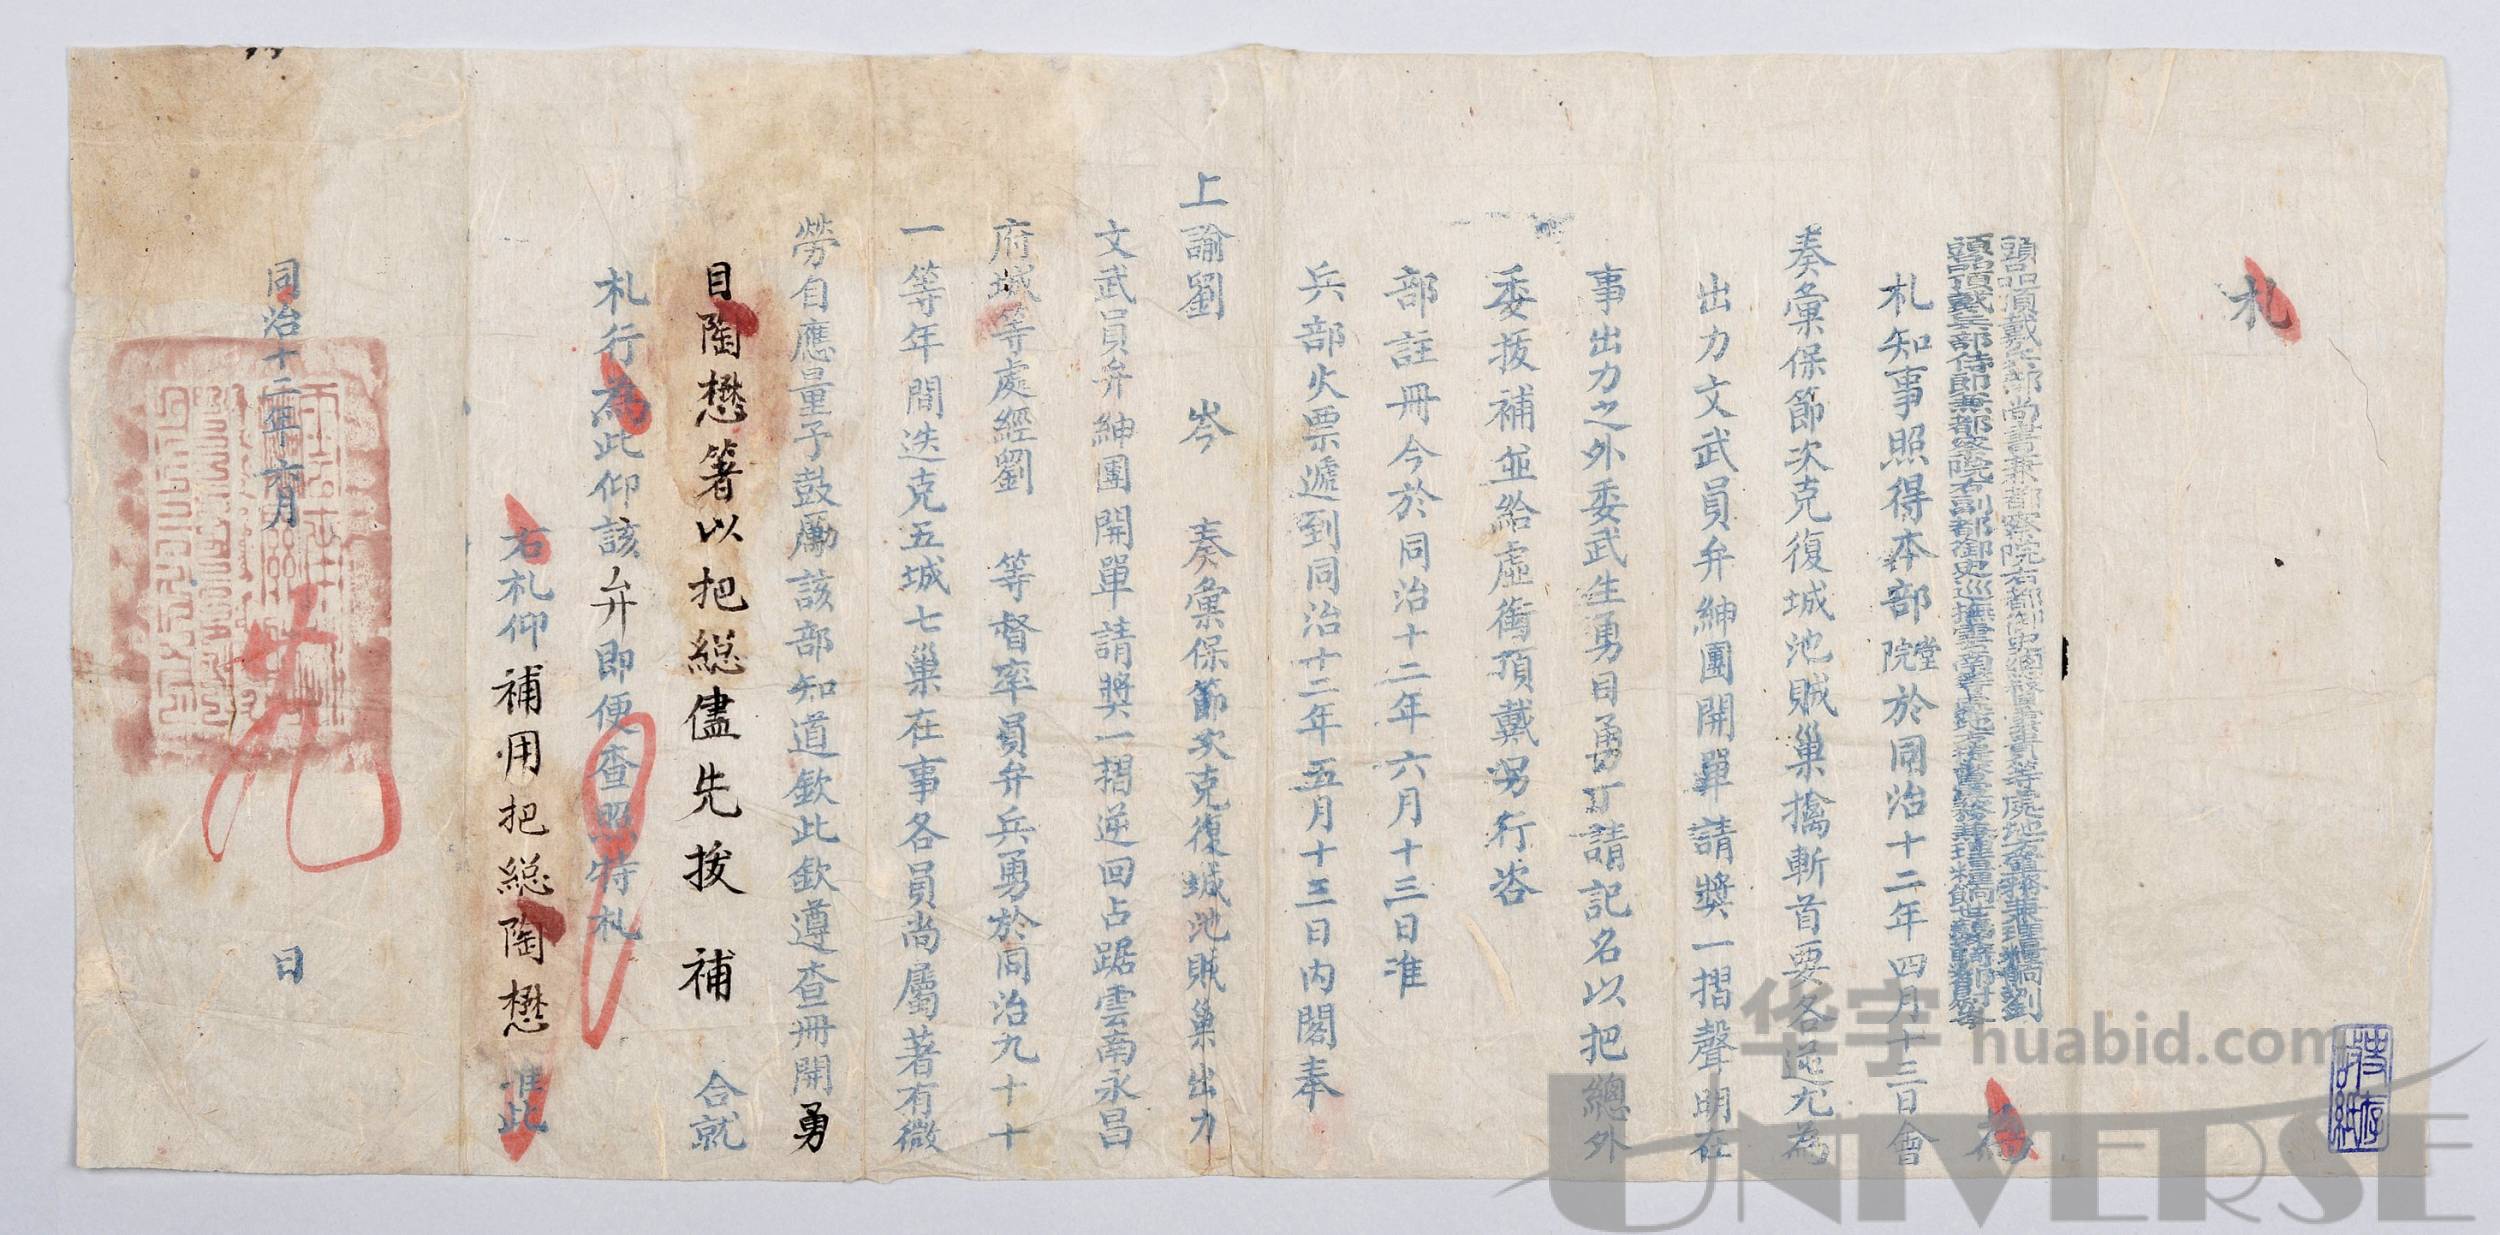 札
頭品頂戴兵部尚書兼都察院右都御史總督雲貴等處地方軍務兼理糧餉劉
頭品頂戴兵部侍郎兼都察院右副都御史巡撫雲南等處地方 世襲騎都尉岑
為
札知事照得本部院堂於同治十二年四月十三日會
奏彙保節次克復城池賊巢擒斬首要各逆尤為
出力文武員弁紳團開單請獎一摺聲明在
事出力之外委武生勇目勇丁請記名以把總外
委拔補並給虛銜頂戴另行咨
部註冊今於同治十二年六月十三日准
兵部火票遞到同治十二年五月十三日內閣奉
上諭劉 岑 奏彙保節次克復城池賊巢出力
文武員弁紳團開單請獎一摺逆回占踞雲南永昌
府城等處經劉 等督率員弁兵勇於同治九十十
一等年間迭克五城七巢在事各員尚屬著有微
勞自應量予鼓勵該部知道欽此欽遵查冊開勇
目陶懋著以把総儘先拔補 合就
札行為此仰該弁即便查照特札
右札仰補用把総陶懋 准此
同治十二年六月 日
华宇 huabid.com
UNIVERSE